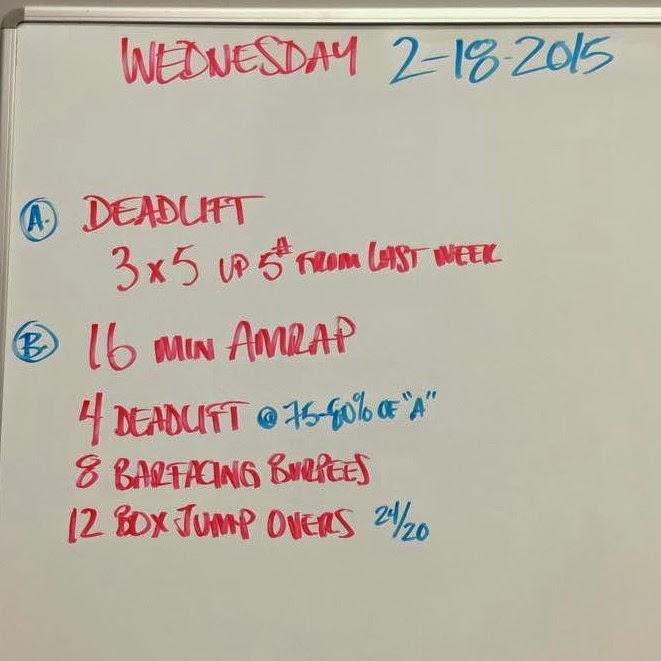 WEDNESDAY 2-18-2015
A. DEADLIFT
3 x 5 UP 5# FROM LAST WEEK
B. 16 MIN AMRAP
4 DEADLIFT @ 75-80% OF "A"
8 BARFACING BURPEES
12 BOX JUMP OVERS 24/20